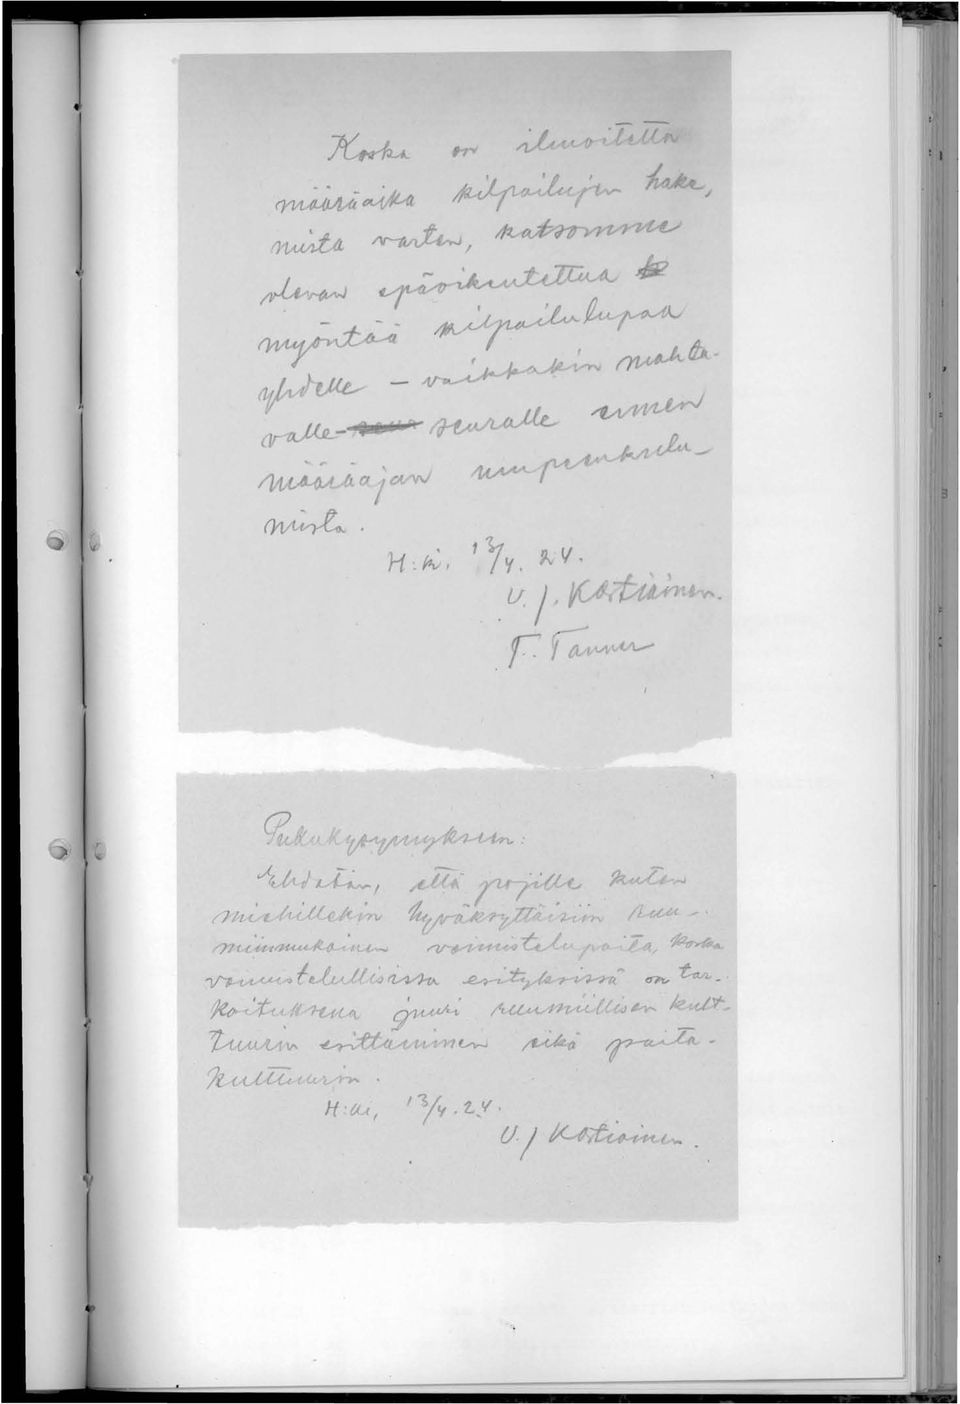 Koska on ilmoitettu
määräaika kilpailujen hake,
mista varten, katsomme
olevan epäoikeutettua
myöntää kilpailulupaa
yhdelle - vaikkakin mahta-
valle- seuralle ennen
määräajan umpeenkulu-
mista.
H:ki, 13/4. 24.
V. J. Kostiainen.
T. Tanner
Pukukysymykseen:
Ehdotan, että pojille kuten
miehillekin hyväksyttäisiin ruu-
miinmukainen voimistelupaita, koska
voimistelullisissa esityksissä on tar-
koituksena juuri ruumiillisen kult-
tuurin esittäminen eikä paita-
kulttuurin.
H:ki, 13/4. 24.
V. J Kostiainen.